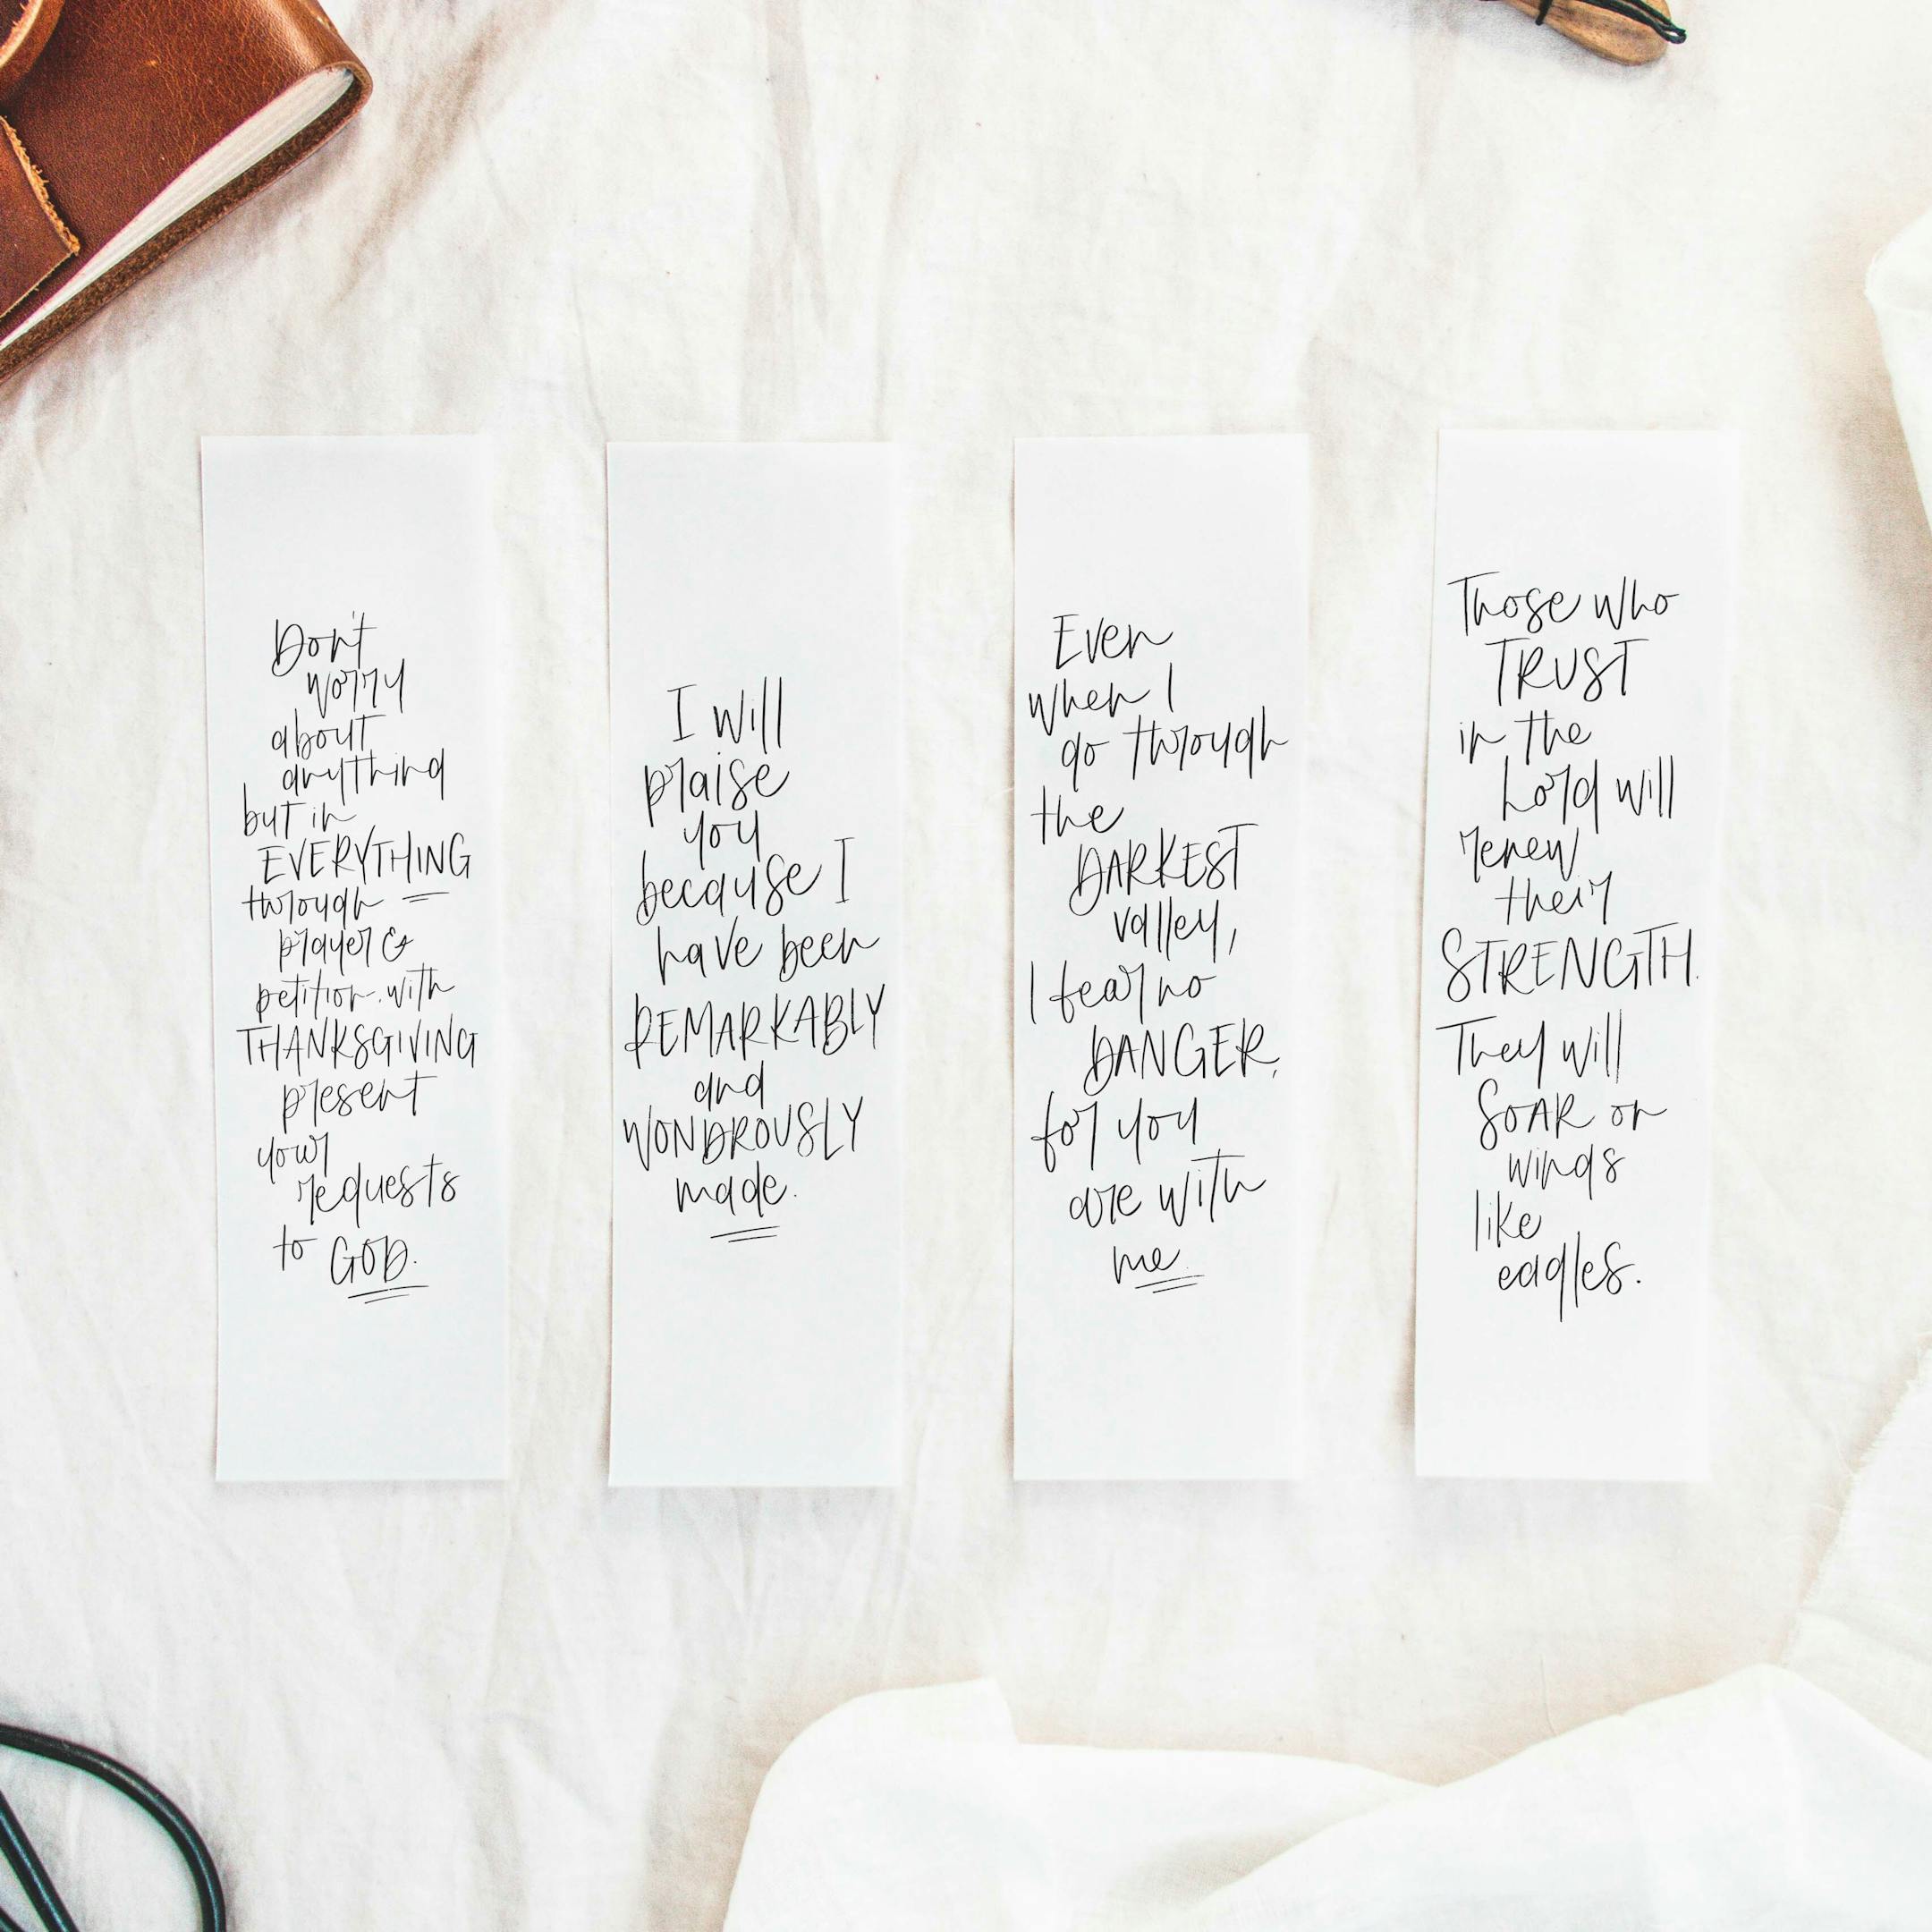 Don't
worry
about
anything
but in
EVERYTHING
through
prayer &
petition, with
THANKSGIVING
present
your
requests
to GOD.
I will
praise
you
because I
have been
REMARKABLY
and
WONDROUSLY
made.
Even
when I
go through
the
DARKEST
valley,
I fear no
DANGER,
for you
are with
me.
Those who
TRUST
in the
Lord will
renew
their
STRENGTH.
They will
SOAR on
winds
like
eagles.